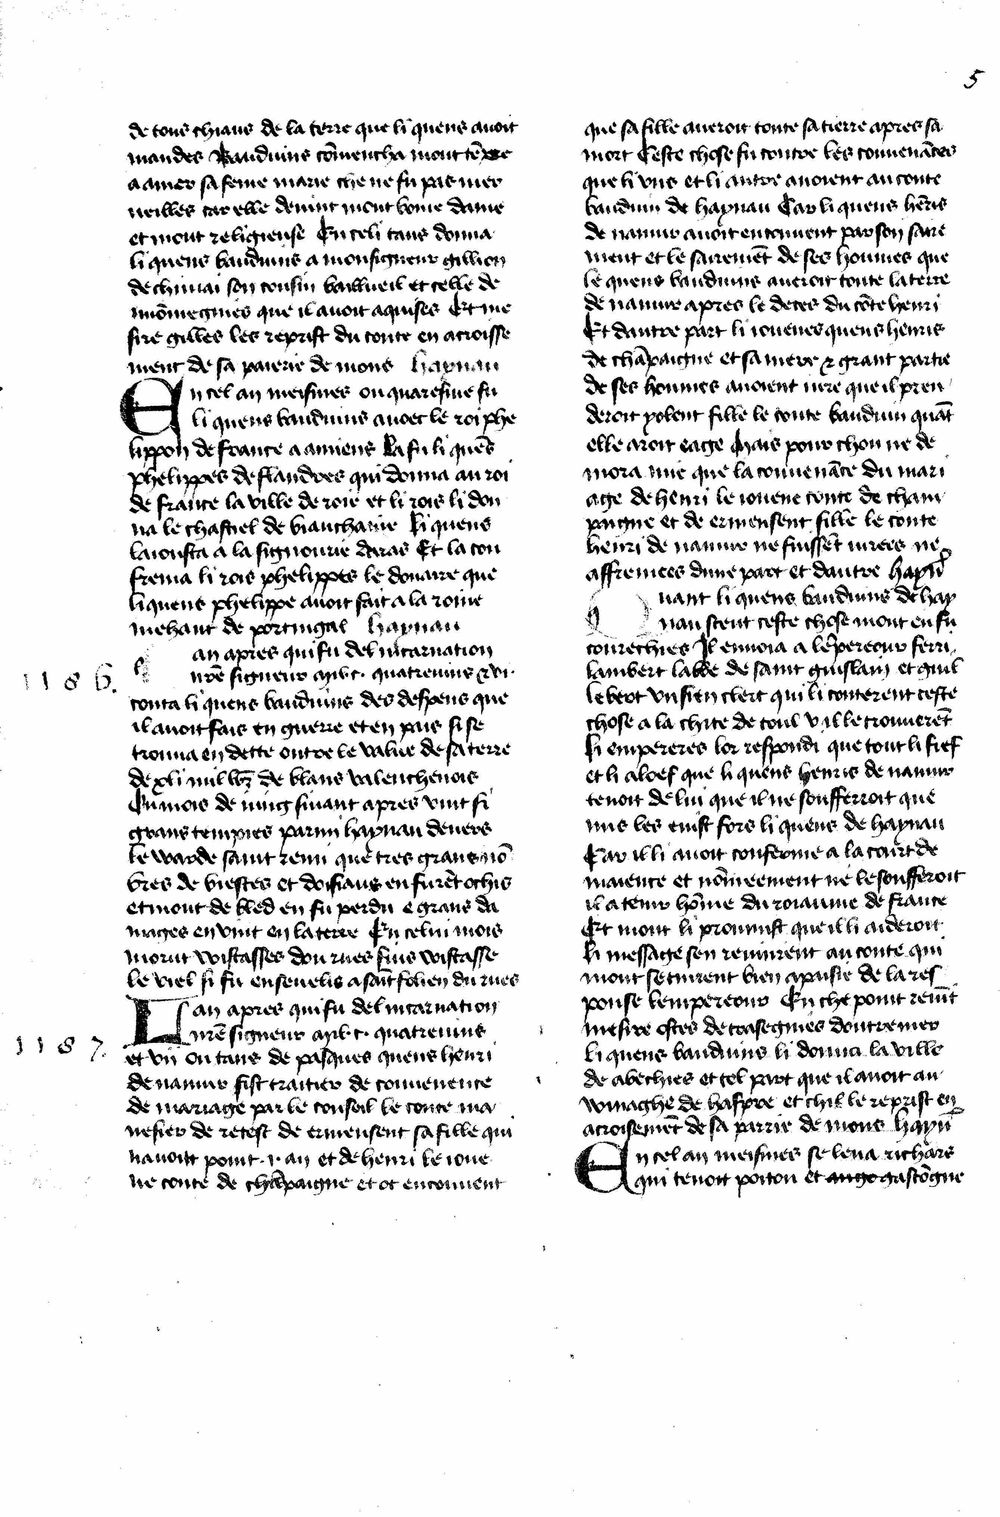 5
de tous chiaus de la terre que li quens auoit
mandes Bauduins cōmencha mout tēpre
a amer sa feme marie che ne fu pas mer
ueilles car elle deuint mout bone dame
et mout religieuse En celi tans donna
li quens bauduins a monsigneur gillion
de chimai son cousin baillueil et celle de
que il auoit aquises Et me
sire gilles les reprist du conte en acroisse
ment de sa paierie de mons haynau
En cel an meismes ou quaresme fu
li quens bauduins auoec le roi phe
lippon de france a amiens La fu li quēs
phelippes de flandres qui donna au roi
de france la ville de roie et li rois li don
na le chastiel de Li quens
laiousta a la signourie daras Et la con
frema li rois phelippes le douaire que
li quens phelippe auoit fait a la roine
mehaut de portingal haynau
1186.
an apres qui fu del incarnation
nrē signeur quatreuins & vi.
conta li quens bauduins des despens que
il auoit fais en guerre et en pais si se
trouua en dette outre le value de sa terre
de xli mil de blans valenchenois
En mois de iung siuant apres vint si
grans tempies parmi haynau deuers
le warde saint remi que tres grans nō
bres de biestes et doisiaus en furēt ochis
et mout de bled en fu perdu e grans da
mages en vint en la terre En celui mois
morut wistasses dou rues fius wistasse
le viel si fu enseuelis a saīt folien du rues
1187.
Lan apres qui fu del incarnation
nrē signeur quatreuins
et vii ou tans de pasques quens henri
de namur fist traitier de conuenence
de mariage par le conseil le conte ma
nesier de retest de ermensent sa fille qui
nauoit point .i. an et de henri le ioue
ne conte de chāpaigne et ot enconuent
que sa fille aueroit toute sa tierre apres sa
mort Ceste chose fu contre les conuenāces
que li vns et li autre auoient au conte
bauduin de haynau Car li quens hēris
de namur auoit enconuent par son saire
ment et le sairemēt de ses hommes que
le quens bauduins aueroit toute la terre
de namur apres le deces du cōte henri
Et dautre part li iouenes quens henris
de chāpaigne et sa mere & grant partie
de ses hommes auoient iure que il pren
deroit yolent fille le conte bauduin quāt
elle aroit eage Mais pour chou ne de
mora mie que la conuenāce du mari
age de henri le iouene conte de cham
paigne et de ermensent fille le conte
henri de namur ne fuissēt iurees ne
affremees dune part et dautre hayn̄
Quant li quens bauduins de hay
nau sceut ceste chose mout en fu
courechies Il enuoia a lēpereour ferri
lambert labbe de saint guislain et guil
lebert vn sien clert qui li conterent ceste
chose a la chite de toul v il le trouuerēt
Li empereres lor respondi que tout li fief
et li aloef que li quens henris de namur
tenoit de lui que il ne soufferroit que
nus les euist fors li quens de haynau
Car il li auoit conferme a la court de
maience et nōmeement ne le soufferoit
il a tenir hōme du roiaume de france
Et mout li proumist que il li aideroit
Li message sen reuinrent au conte qui
mout se tinrent bien a paiie de la res
ponse lempereour En che point reuīt
mesire ostes de trasegnies doutremer
li quens bauduins li donna la ville
de abechies et tel part que il auoit au
winaghe de haspre et chil le reprist en
acroisemēt de sa parrie de mons hayn̄
En cel an meismes se leua richars
qui tenoit poitou et ango gascōgne